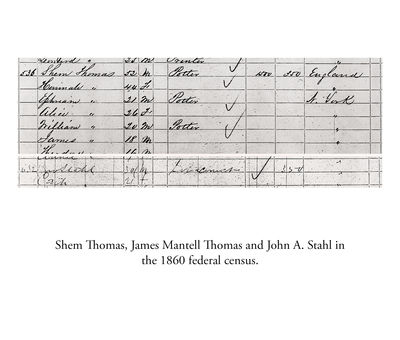 " 25 M Printer
536 Shem Thomas 52 M Potter 400 350 England
Hannah " 44 F "
Ephraim " 21 M Potter N. York
Alice " 26 F "
William " 20 M Potter "
James " 18 M "
" 16 M "
Stahl M 350 "
" F "
Shem Thomas, James Mantell Thomas and John A. Stahl in
the 1860 federal census.